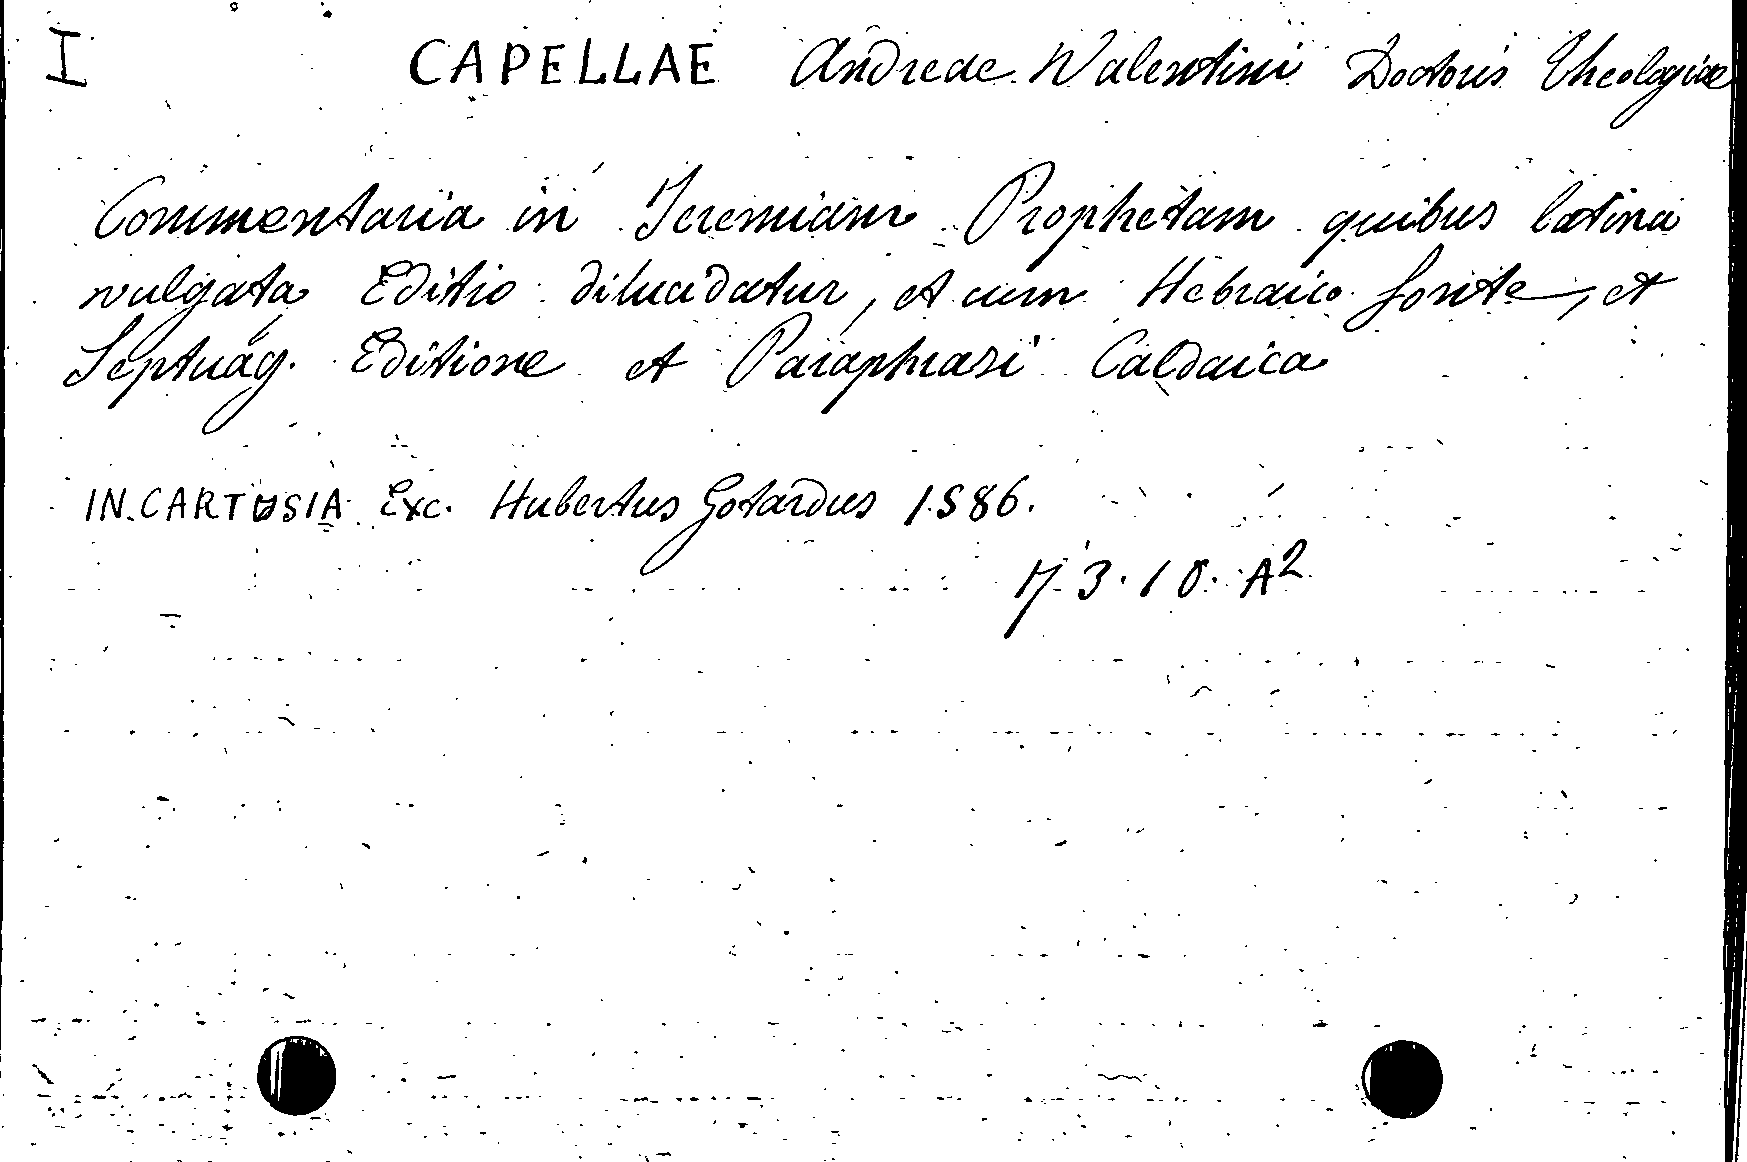 I CAPELLAE Andreae Valentini Doctoris Theologiae
Commentaria in Jeremiam Prophetam quibus latina
vulgata Editio dilucidatur, et cum Hebraico fonte, et
Septuag. Editione et Paraphrasi Caldaica
IN.CARTUSIA Exc. Hubertus Gotardus 1586.
3.10. A2